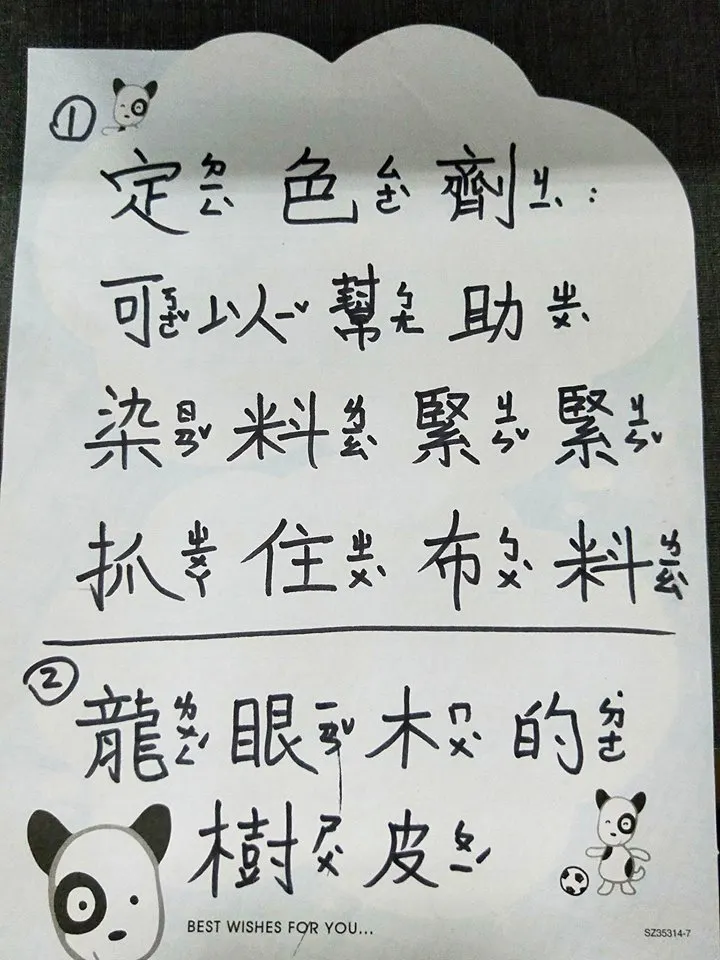 ①
定ㄉㄧㄥˋ 色ㄙㄜˋ 劑ㄐㄧˋ：
可ㄎㄜˇ 以ㄧˇ 幫ㄅㄤ 助ㄓㄨˋ
染ㄖㄢˇ 料ㄌㄧㄠˋ 緊ㄐㄧㄣˇ 緊ㄐㄧㄣˇ
抓ㄓㄨㄚ 住ㄓㄨˋ 布ㄅㄨˋ 料ㄌㄧㄠˋ
②
龍ㄌㄨㄥˊ 眼ㄧㄢˇ 木ㄇㄨˋ 的˙ㄉㄜ
樹ㄕㄨˋ 皮ㄆㄧˊ
BEST WISHES FOR YOU...
SZ35314-7